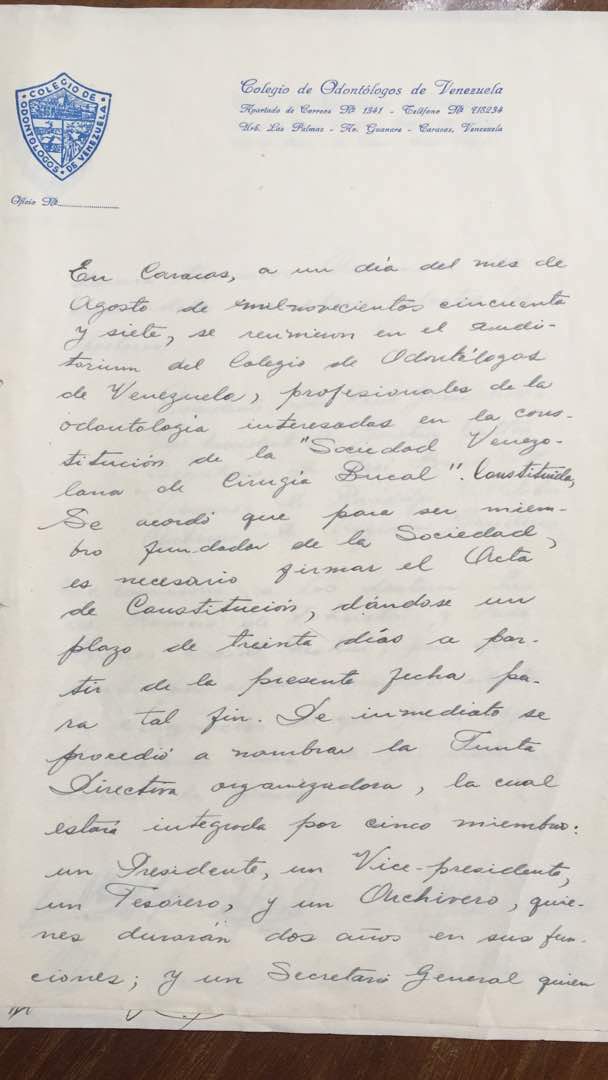 COLEGIO DE
ODONTOLOGOS
DE VENEZUELA
Colegio de Odontólogos de Venezuela
Apartado de Correos Nº 1341 - Teléfono Nº 713234
Urb. Las Palmas - Av. Guanare - Caracas, Venezuela
Oficio Nº
En Caracas, a un día del mes de
Agosto de milnovecientos cincuenta
y siete, se reunieron en el audi-
torium del Colegio de Odontólogos
de Venezuela, profesionales de la
odontología interesadas en la cons-
titución de la "Sociedad Venezo-
lana de Cirugía Bucal". Constituida,
Se acordó que para ser miem-
bro fundador de la Sociedad,
es necesario firmar el Acta
de Constitución, dándose un
plazo de treinta días a par-
tir de la presente fecha pa-
ra tal fin. De inmediato se
procedió a nombrar la Junta
Directiva organizadora, la cual
estará integrada por cinco miembros:
un Presidente, un Vice-presidente,
un Tesorero, y un Archivero, quie-
nes durarán dos años en sus fun-
ciones; y un Secretario General quien